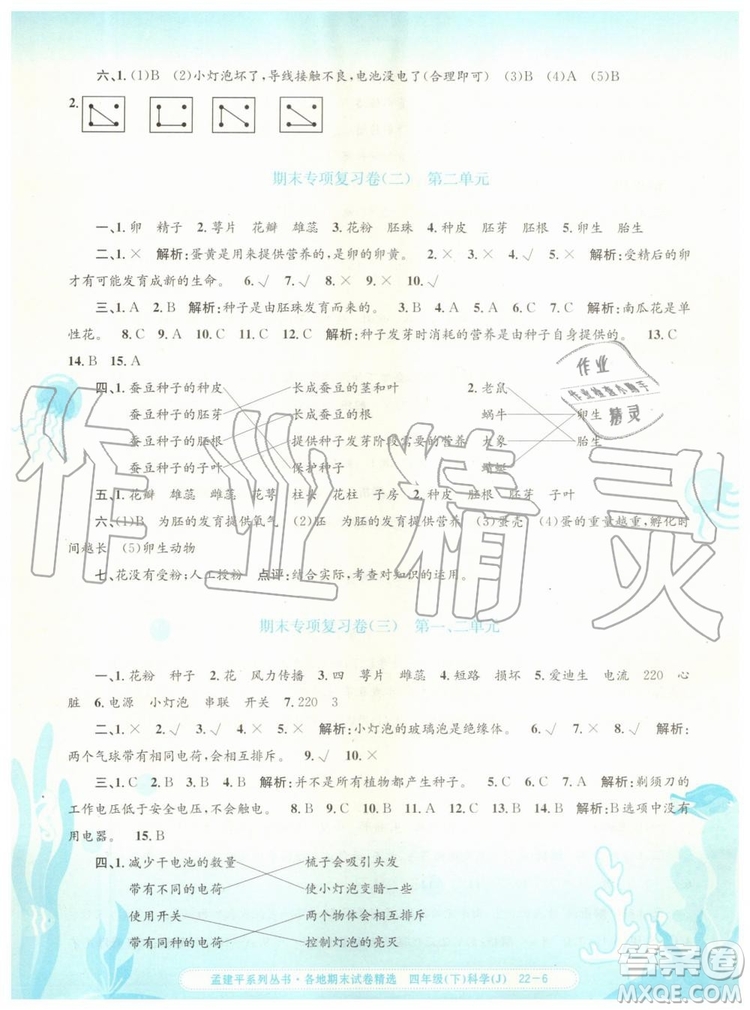 六、1.(1)B (2)小灯泡坏了,导线接触不良,电池没电了(合理即可) (3)B (4)A (5)B
2.
期末专项复习卷(二) 第二单元
一、1.卵 精子 2.萼片 花瓣 雄蕊 3.花粉 胚珠 4.种皮 胚芽 胚根 5.卵生 胎生
二、1.× 解析:蛋黄是用来提供营养的,是卵的卵黄。 2.× 3.× 4.× 5.× 解析:受精后的卵
才有可能发育成新的生命。 6.√ 7.√ 8.× 9.× 10.√
三、1.A 2.B 解析:种子是由胚珠发育而来的。 3.B 4.A 5.C 6.B 7.B 解析:南瓜花是单
性花。 8.C 9.A 10.C 11.C 12.C 解析:种子发芽时消耗的营养是由种子自身提供的。 13.C
14.B 15.A
四、1.蚕豆种子的种皮 长成蚕豆的茎和叶 2.老鼠
蚕豆种子的胚芽 长成蚕豆的根 蜗牛 卵生
蚕豆种子的胚根 提供种子发芽阶段需要的营养 大象 胎生
蚕豆种子的子叶 保护种子 蜻蜓
五、1.花瓣 雄蕊 雌蕊 花萼 柱头 花柱 子房 2.种皮 胚芽 胚根 子叶
六、(1)B 为胚的发育提供氧气 (2)胚 为胚的发育提供营养 (3)蛋壳 (4)蛋的重量越重,孵化时
间越长 (5)卵生动物
七、花没有受粉;人工授粉 点评:结合实际,考查对知识的运用。
期末专项复习卷(三) 第一、二单元
一、1.花粉 种子 2.花 风力传播 3.四 萼片 雌蕊 4.短路 损坏 5.爱迪生 电流 220 心
脏 6.电源 小灯泡 串联 开关 7.220 3
二、1.× 2.√ 3.√ 4.× 5.× 解析:小灯泡的玻璃泡是绝缘体。 6.√ 7.× 8.√ 解析:
两个气球带有相同电荷,会相互排斥。 9.√ 10.√
三、1.C 2.C 3.A 4.B 解析:并不是所有植物都产生种子。 5.C 6.A 7.B 解析:剃须刀的
工作电压低于安全电压,不会触电。 8.C 9.B 10.C 11.C 12.C 13.A 14.A 解析:B选项中没有
用电器。 15.B
四、1.减少干电池的数量 梳子会吸引头发
带有不同的电荷 使小灯泡变暗一些
使用开关 两个物体会相互排斥
带有同种的电荷 控制灯泡的亮灭
孟建平系列丛书·各地期末试卷精选 四年级(下)科学(J) 22-6
作业精灵
作业
作业检查小助手
精灵
答案圈
MXQE.COM